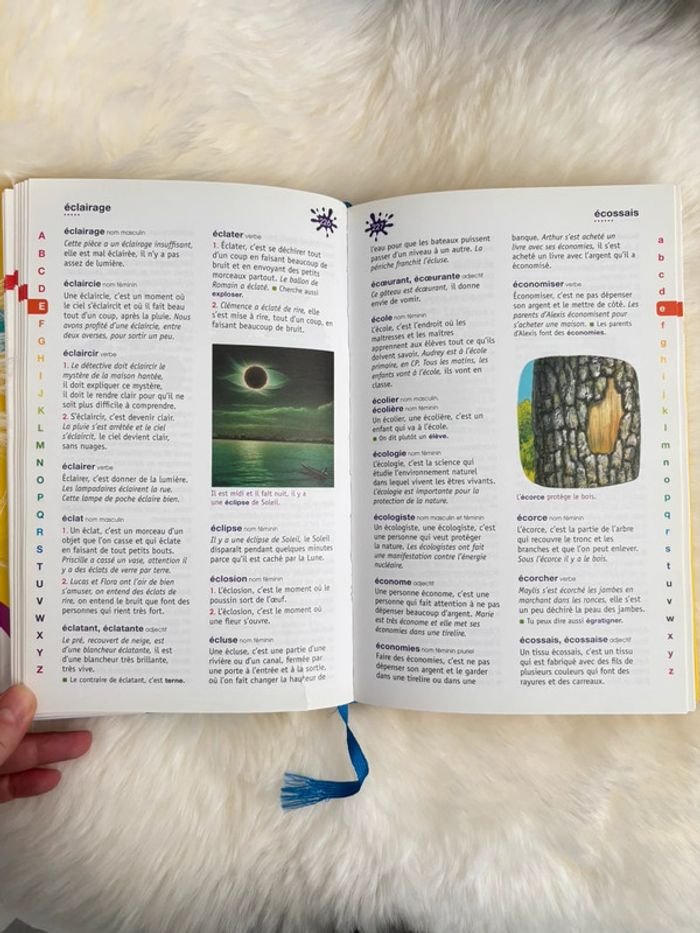 éclairage
éclairage nom masculin
Cette pièce a un éclairage insuffisant,
elle est mal éclairée, il n'y a pas
assez de lumière.
éclaircie nom féminin
Une éclaircie, c'est un moment où
le ciel s'éclaircit et où il fait beau
tout d'un coup, après la pluie. Nous
avons profité d'une éclaircie, entre
deux averses, pour sortir un peu.
éclaircir verbe
1. Le détective doit éclaircir le
mystère de la maison hantée,
il doit expliquer ce mystère,
il doit le rendre clair pour qu'il ne
soit plus difficile à comprendre.
2. S'éclaircir, c'est devenir clair.
La pluie s'est arrêtée et le ciel
s'éclaircit, le ciel devient clair,
sans nuages.
éclairer verbe
Éclairer, c'est donner de la lumière.
Les lampadaires éclairent la rue.
Cette lampe de poche éclaire bien.
éclat nom masculin
1. Un éclat, c'est un morceau d'un
objet que l'on casse et qui éclate
en faisant de tout petits bouts.
Priscille a cassé un vase, attention il
y a des éclats de verre par terre.
2. Lucas et Flora ont l'air de bien
s'amuser, on entend des éclats de
rire, on entend le bruit que font des
personnes qui rient très fort.
éclatant, éclatante adjectif
Le pré, recouvert de neige, est
d'une blancheur éclatante, il est
d'une blancheur très brillante,
très vive.
■ Le contraire de éclatant, c'est terne.
éclater verbe
1. Éclater, c'est se déchirer tout
d'un coup en faisant beaucoup de
bruit et en envoyant des petits
morceaux partout. Le ballon de
Romain a éclaté. ■ Cherche aussi
exploser.
2. Clémence a éclaté de rire, elle
s'est mise à rire, tout d'un coup, en
faisant beaucoup de bruit.
Il est midi et il fait nuit, il y a
une éclipse de Soleil.
éclipse nom féminin
Il y a une éclipse de Soleil, le Soleil
disparaît pendant quelques minutes
parce qu'il est caché par la Lune.
éclosion nom féminin
1. L'éclosion, c'est le moment où le
poussin sort de l'œuf.
2. L'éclosion, c'est le moment où
une fleur s'ouvre.
écluse nom féminin
Une écluse, c'est une partie d'une
rivière ou d'un canal, fermée par
une porte à l'entrée et à la sortie,
où l'on fait changer la hauteur de
A
B
C
D
E
F
G
H
I
J
K
L
M
N
O
P
Q
R
S
T
U
V
W
X
Y
Z
écossais
l'eau pour que les bateaux puissent
passer d'un niveau à un autre. La
péniche franchit l'écluse.
écœurant, écœurante adjectif
Ce gâteau est écœurant, il donne
envie de vomir.
école nom féminin
L'école, c'est l'endroit où les
maîtresses et les maîtres
apprennent aux élèves tout ce qu'ils
doivent savoir. Audrey est à l'école
primaire, en CP. Tous les matins, les
enfants vont à l'école, ils vont en
classe.
écolier nom masculin,
écolière nom féminin
Un écolier, une écolière, c'est un
enfant qui va à l'école.
■ On dit plutôt un élève.
écologie nom féminin
L'écologie, c'est la science qui
étudie l'environnement naturel
dans lequel vivent les êtres vivants.
L'écologie est importante pour la
protection de la nature.
écologiste nom masculin et féminin
Un écologiste, une écologiste, c'est
une personne qui veut protéger
la nature. Les écologistes ont fait
une manifestation contre l'énergie
nucléaire.
économe adjectif
Une personne économe, c'est une
personne qui fait attention à ne pas
dépenser beaucoup d'argent. Marie
est très économe et elle met ses
économies dans une tirelire.
économies nom féminin pluriel
Faire des économies, c'est ne pas
dépenser son argent et le garder
dans une tirelire ou dans une
banque. Arthur s'est acheté un
livre avec ses économies, il s'est
acheté un livre avec l'argent qu'il a
économisé.
économiser verbe
Économiser, c'est ne pas dépenser
son argent et le mettre de côté. Les
parents d'Alexis économisent pour
s'acheter une maison. ■ Les parents
d'Alexis font des économies.
L'écorce protège le bois.
écorce nom féminin
L'écorce, c'est la partie de l'arbre
qui recouvre le tronc et les
branches et que l'on peut enlever.
Sous l'écorce il y a le bois.
écorcher verbe
Maylis s'est écorché les jambes en
marchant dans les ronces, elle s'est
un peu déchiré la peau des jambes.
■ Tu peux dire aussi égratigner.
écossais, écossaise adjectif
Un tissu écossais, c'est un tissu
qui est fabriqué avec des fils de
plusieurs couleurs qui font des
rayures et des carreaux.
a
b
c
d
e
f
g
h
i
j
k
l
m
n
o
p
q
r
s
t
u
v
w
x
y
z